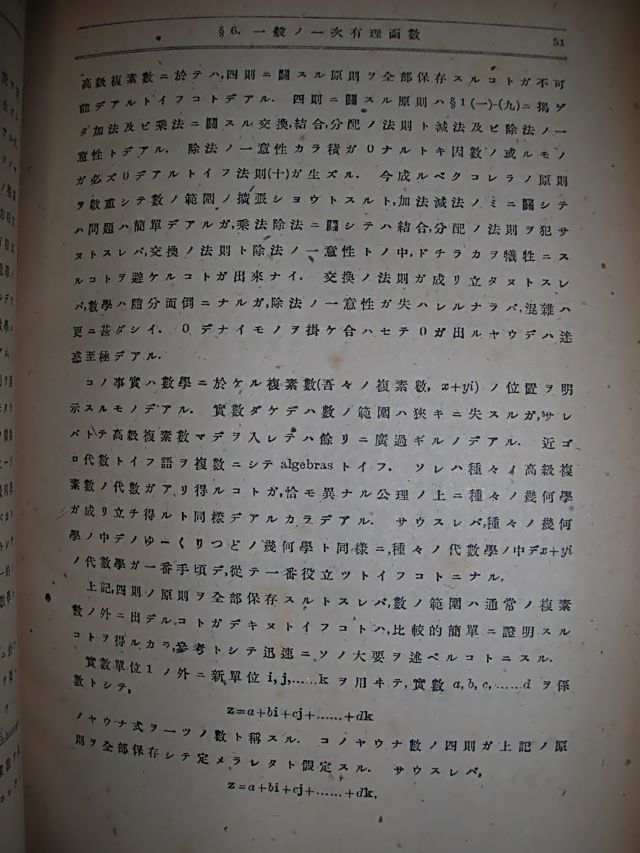 §6. 一般ノ一次有理函數
51
高級複素數ニ於テハ,四則ニ關スル原則ヲ全部保存スルコトガ不可
能デアルトイフコトデアル. 四則ニ關スル原則ハ§1(一)-(九)ニ掲ゲ
タ加法及ビ乘法ニ關スル交換,結合,分配ノ法則ト減法及ビ除法ノ一
意性トデアル. 除法ノ一意性カラ積ガ0ナルトキ因數ノ或ルモノ
ガ必ズ0デアルトイフ法則(十)ガ生ズル. 今成ルベクコレラノ原則
ヲ嚴重シテ數ノ範圍ノ擴張シヨウトスルト,加法減法ノミニ關シテ
ハ問題ハ簡單デアルガ,乘法除法ニ關シテハ結合,分配ノ法則ヲ犯サ
ヌトスレバ,交換ノ法則ト除法ノ一意性トノ中,ドチラカヲ犠牲ニス
ルコトヲ避ケルコトガ出來ナイ. 交換ノ法則ガ成リ立タヌトスレ
バ,數學ハ隨分面倒ニナルガ,除法ノ一意性ガ失ハレルナラバ,混雜ハ
更ニ甚ダシイ. 0デナイモノヲ掛ケ合ハセテ0ガ出ルヤウデハ迷
惑至極デアル.
コノ事實ハ數學ニ於ケル複素數(吾々ノ複素數, x+yi)ノ位置ヲ明
示スルモノデアル. 實數ダケデハ數ノ範圍ハ狹キニ失スルガ,サレ
バトテ高級複素數マデヲ入レテハ餘リニ廣過ギルノデアル. 近ゴ
ロ代數トイフ語ヲ複數ニシテ algebras トイフ. ソレハ種々イ高級複
素數ノ代數ガアリ得ルコトガ,恰モ異ナル公理ノ上ニ種々ノ幾何學
ガ成リ立チ得ルト同樣デアルカラデアル. サウスレバ,種々ノ幾何
學ノ中デノゆーくりつどノ幾何學ト同樣ニ,種々ノ代數學ノ中デx+yi
ノ代數學ガ一番手頃デ,從テ一番役立ツトイフコトニナル.
上記,四則ノ原則ヲ全部保存スルトスレバ,數ノ範圍ハ通常ノ複素
數ノ外ニ出デルコトガデキヌトイフコトハ,比較的簡單ニ證明スル
コトヲ得ルカラ,參考トシテ迅速ニソノ大要ヲ述ベルコトニスル.
實數單位1ノ外ニ新單位 i, j,……k ヲ用ヰテ,實數 a, b, c, ……d ヲ係
數トシテ,
z=a+bi+cj+……+dk
ノヤウナ式ヲ一ツノ數ト稱スル. コノヤウナ數ノ四則ガ上記ノ原
則ヲ全部保存シテ定メラレタト假定スル. サウスレバ,
z=a+bi+cj+……+dk,